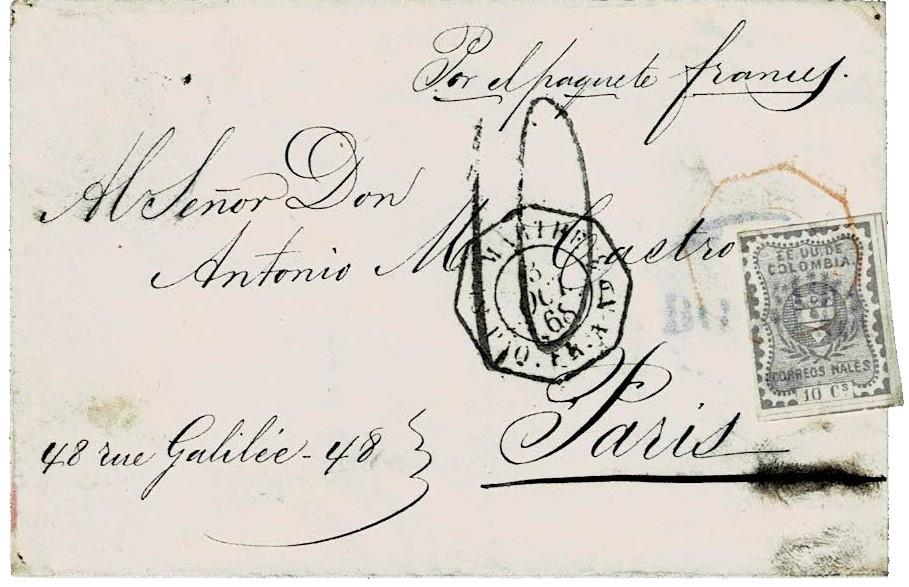 Por el paquete frances.
Al Señor Don
Antonio M Castro
Paris
48 rue Galilée - 48
10
OCT
68
EE.UU.DE
COLOMBIA
CORREOS NALES
10 Cs